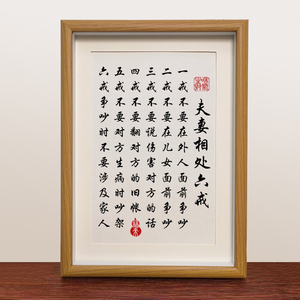 夫妻相处六戒
一戒不要在外人面前争吵
二戒不要在儿女面前争吵
三戒不要说伤害对方的话
四戒不要翻对方的旧帐
五戒不要对方生病时吵架
六戒争吵时不要涉及家人